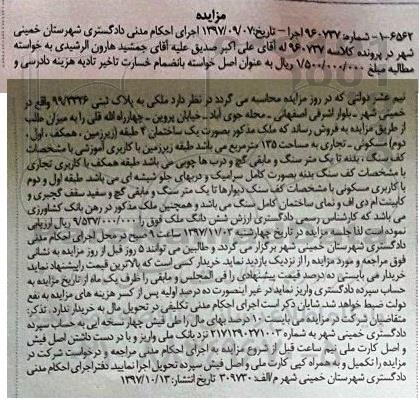 مزایده
۱-۶۵۶۲- شماره: ۹۶۰۷۳۷ اجرا - تاریخ: ۱۳۹۷/۰۹/۰۷ اجرای احکام مدنی دادگستری شهرستان خمینی
شهر در پرونده کلاسه ۹۶۰۷۳۷ له آقای علی اکبر صدیق علیه آقای جمشید هارون الرشیدی به خواسته
مطالبه مبلغ ۱/۵۰۰/۰۰۰/۰۰۰ ریال به عنوان اصل خواسته بانضمام خسارت تاخیر تادیه هزینه دادرسی و
نیم عشر دولتی که در روز مزایده محاسبه می گردد در نظر دارد ملکی به پلاک ثبتی ۹۹/۳۳۲۶ واقع در
خمینی شهر - بلوار اشرفی اصفهانی - محله جوی آباد - خیابان پروین - چهارراه الله قلی را به میزان طلب
از طریق مزایده به فروش رساند که ملک مذکور بصورت یک ساختمان ۴ طبقه (زیرزمین، همکف، اول،
دوم) مسکونی - تجاری به مساحت ۱۳۵ مترمربع می باشد طبقه زیرزمین با کاربری آموزشی با مشخصات
کف سنگ، بدنه تا یک متر سنگ و مابقی گچ و درب ها چوبی می باشد طبقه همکف با کاربری تجاری
با مشخصات کف سنگ بدنه بصورت کامل سرامیک و دربهای جلو شیشه ای می باشد. طبقه اول و دوم
با کاربری مسکونی با مشخصات کف سنگ دیوارها تا یک متر سنگ و مابقی گچ و سفید سقف گچبری و
کابینت ام دی اف و نمای ساختمان کامل سنگ می باشد و همچنین ملک مذکور در رهن بانک کشاورزی
می باشد که کارشناس رسمی دادگستری ارزش شش دانگ ملک فوق را ۹/۵۳۷/۰۰۰/۰۰۰ ریال ارزیابی
نموده است لذا جلسه مزایده در تاریخ چهارشنبه ۱۳۹۷/۱۱/۰۳ ساعت ۹ صبح در محل اجرای احکام مدنی
دادگستری خمینی شهر برگزار می گردد. و طالبین می توانند ۵ روز قبل از روز مزایده به نشانی
فوق مراجعه و مورد مزایده را از نزدیک بازدید نمایند. خریدار کسی است که بالاترین قیمت را پیشنهاد نماید
خریدار می بایستی ده درصد قیمت پیشنهادی را فی المجلس و مابقی را ظرف یک ماه از تاریخ مزایده به
حساب سپرده دادگستری واریز نماید در غیر اینصورت ده درصد اولیه پس از کسر هزینه های مزایده به نفع
دولت ضبط خواهد شد. شایان ذکر است اجرای احکام مدنی تکلیفی در تحویل مال به خریدار ندارد. تذکر:
متقاضیان شرکت در مزایده می بایست ۱۰ درصد بهای مال را طی فیش چهار نسخه ایی به حساب سپرده
دادگستری خمینی شهر به شماره ۲۱۷۱۲۹۰۲۷۱۰۰۳ نزد بانک ملی واریز و با در دست داشتن اصل فیش
و اصل کارت ملی نیم ساعت قبل از شروع مزایده به اجرای احکام مدنی مراجعه و درخواست شرکت در
مزایده را تکمیل و به همراه کپی کارت ملی و اصل فیش سپرده تحویل اجرا نمایند. دفتر اجرای احکام مدنی
دادگستری شهرستان خمینی شهر م/الف: ۳۰۹۷۳۰ تاریخ انتشار: ۱۳۹۷/۱۰/۱۳